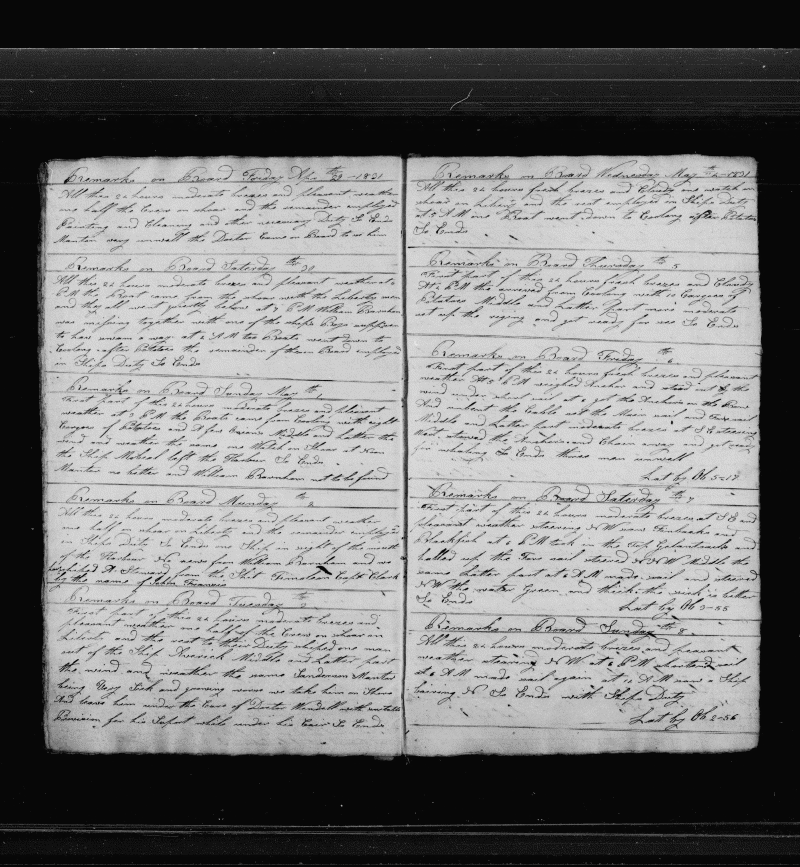 Remarks on Board Friday Apr th 29 - 1831
All this 24 hours moderate brezes and pleasent weather
one half the Crew on shoar and the remander employed
Painting and Cleaning and other necesary Duty So Ends
Manter very unwell the Doctor Came on Board to see him
Remarks on Board Saterday th 30
All this 24 hours moderate brezes and pleasent weather at 6
P M the Boat came from the shoar with the Liberty men
and they all went quietly below at 9 P M William Barnham
was missing together with one of the ships Crys
to have swam a way at 6 A M two Boats went down to
after Potatoes the remainder of them on Board employed
in Ships Duty So Ends
Remarks on Board Sunday May th 1
First part of this 24 hours moderate brezes and pleasent
weather at 7 P M the Boats came from with eight
of Potatoes and A few Onions Middle and hatter the
wind and weather the same one Watch on Shoar at Noon
the Ship left the Harbour So Ends
Manter no better and William Barnham not to be found
Remarks on Board Monday th 2
All this 24 hours moderate brezes and pleasent weather
one half on shoar on liberty and the remander employed
in Ships Duty So Ends one Ship in sight of the mouth
of the Harbour No news from William Barnham and we
shipped A Steward from the Ship Timoleon Capt Clark
by the name of John Francis
Remarks on Board Tuesday th 3
First part of this 24 hours moderate brezes and
pleasent weather one half of the Crew on shoar on
Liberty and the rest to their Duty shiped one man
out of the Ship Middle and hatter part
the wind and weather the same Sanderson Manter
being Very Sick and growing worse we take him on Shore
And leave him under the Care of Doctor with
Provision for his Suport while under his Cair So Ends
Remarks on Board Wednesday May th 4 - 1831
All this 24 hours fresh brezes and Cloudy one watch on
shoar on Liberty and the rest employed in Ships Duty
at 5 A M one Boat went down to after Potatoes
So Ends
Remarks on Board Thursday th 5
First part of this 24 hours fresh brezes and Cloudy
At 6 P M the arrived from with 10 of
Potatoes Middle and hatter part more moderate
set up the riging and got ready for sea So Ends
Remarks on Board Friday th 6
First part of this 24 hours fresh brezes and pleasent
weather At 2 P M weighed Anchor and stood out the
wind under short sail at 4 got the Anchors on the Bow
And unbent the Cable set the Main sail and
Middle and hatter part moderate brezes at S E steering
West stowed the Anchors and Chain away and got ready
for whaling So Ends three men unwell
Lat by Ob 5-17
Remarks on Board Saterday th 7
First part of this 24 hours moderate brezes at S E and
pleasent weather steering N W saw Finbacks and
Blackfish at 6 P M took in the Top Galantsails and
halled up the Fore sail steered N N W Middle the
same hatter part at 6 A M made sail and steered
N W the water Green and thick the sick is better
So Ends
Lat by Ob 3-55
Remarks on Board Sunday th 8
All this 24 hours moderate brezes and pleasent
weather stearing N W at 6 P M shortend sail
at 6 A M made sail again at 11 A M saw a Ship
bairing N So Ends with Ships Duty
Lat by Ob 2-56